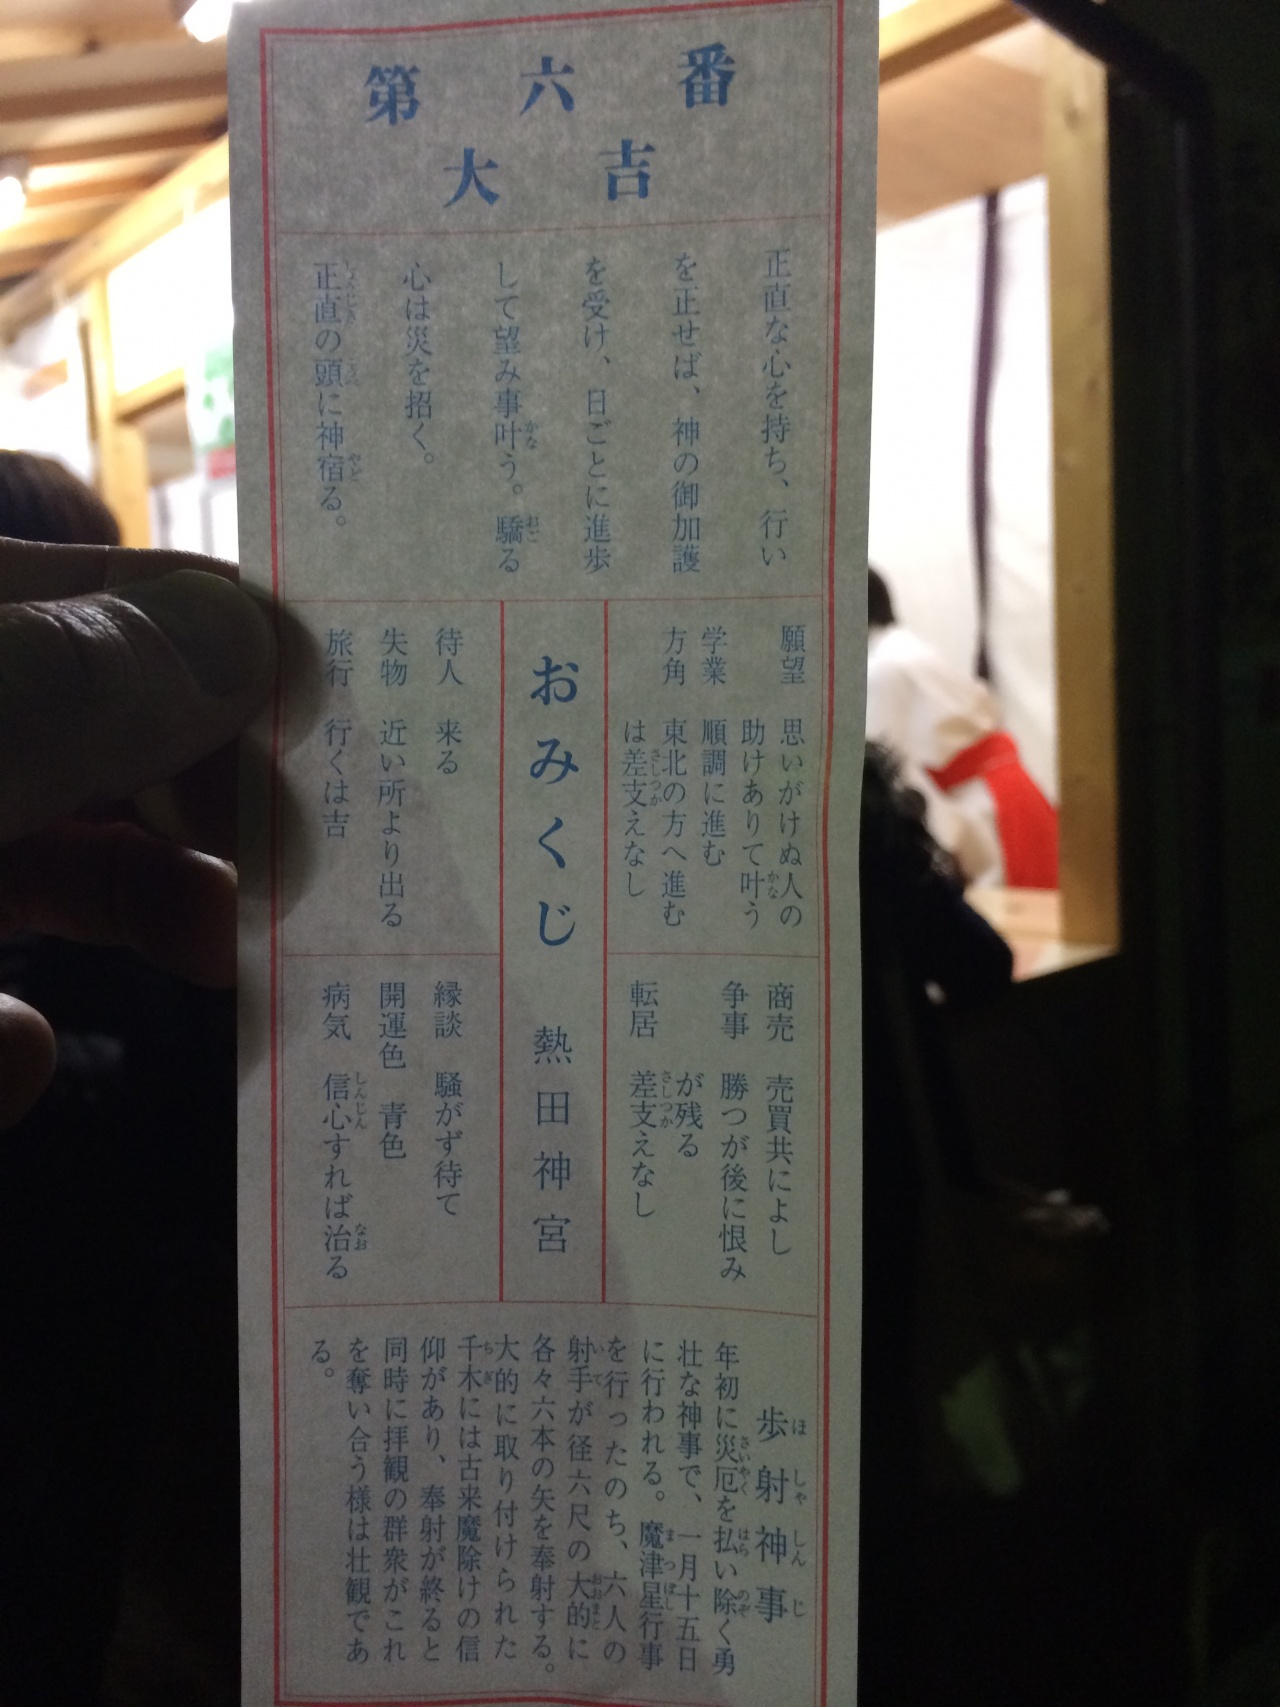 第六番
大吉
正直な心を持ち、行い
を正せば、神の御加護
を受け、日ごとに進歩
して望み事叶う。驕る
心は災を招く。
正直の頭に神宿る。
願望 思いがけぬ人の
助けありて叶う
学業 順調に進む
方角 東北の方へ進む
は差支えなし
商売 売買共によし
争事 勝つが後に恨み
が残る
転居 差支えなし
おみくじ 熱田神宮
待人 来る
失物 近い所より出る
旅行 行くは吉
縁談 騒がず待て
開運色 青色
病気 信心すれば治る
歩射神事
年初に災厄を払い除く勇
壮な神事で、一月十五日
に行われる。魔津星行事
を行ったのち、六人の
射手が径六尺の大的に
各々六本の矢を奉射する。
大的に取り付けられた
千木には古来魔除けの信
仰があり、奉射が終ると
同時に拝観の群衆がこれ
を奪い合う様は壮観であ
る。